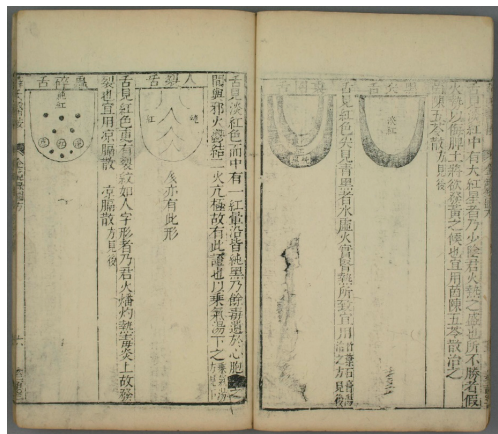 舌見淡紅中有大紅星者乃少陰君火熱之盛也所不勝者假
火勢以侮脾土將欲發黃之候也宜用茵陳五苓散治之
五苓散方見後
舌食裏
淡紅
舌見紅色尖見青黑者水虛火實腎熱所致宜用竹葉石膏湯
治之方見後
舌圈裏
紅
舌見淡紅色而中有一紅暈沿皆純黑乃餘毒遺於心胞
間與邪火鬱結二火亢極故有此證也以承氣湯下之
舌裂人
純
紅
後亦有此形
舌見紅色更有裂紋如人字形者乃君火燔灼熱毒炎上故發
裂也宜用涼膈散
涼膈散方見後
舌碎蟲
純紅